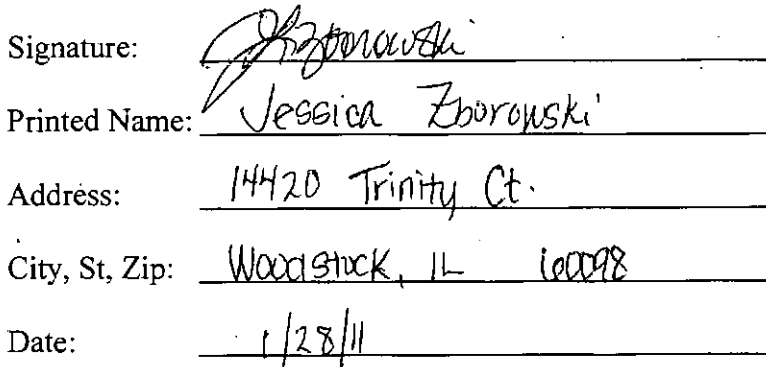 Signature: JZborowski
Printed Name: Jessica Zborowski
Address: 14420 Trinity Ct.
City, St, Zip: Woodstock, IL 60098
Date: 1/28/11